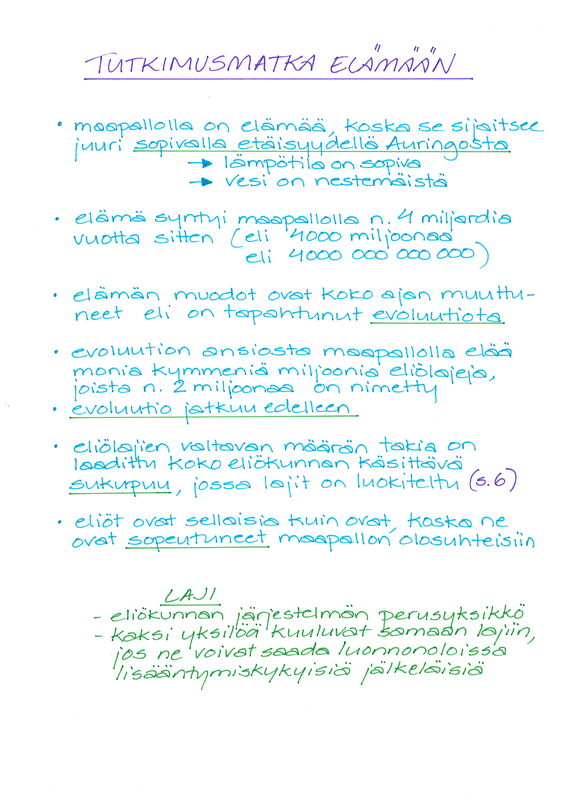 TUTKIMUSMATKA ELÄMÄÄN
• maapallolla on elämää, koska se sijaitsee
juuri sopivalla etäisyydellä Auringosta
→ lämpötila on sopiva
→ vesi on nestemäistä
• elämä syntyi maapallolla n. 4 miljardia
vuotta sitten (eli 4000 miljoonaa
eli 4000 000 000 000)
• elämän muodot ovat koko ajan muuttu-
neet eli on tapahtunut evoluutiota
• evoluution ansiosta maapallolla elää
monia kymmeniä miljoonia eliölajeja,
joista n. 2 miljoonaa on nimetty
• evoluutio jatkuu edelleen
• eliölajien valtavan määrän takia on
laadittu koko eliökunnan käsittävä
sukupuu, jossa lajit on luokiteltu (s.6)
• eliöt ovat sellaisia kuin ovat, koska ne
ovat sopeutuneet maapallon olosuhteisiin
LAJI
- eliökunnan järjestelmän perusyksikkö
- kaksi yksilöä kuuluvat samaan lajiin,
jos ne voivat saada luonnonoloissa
lisääntymiskykyisiä jälkeläisiä